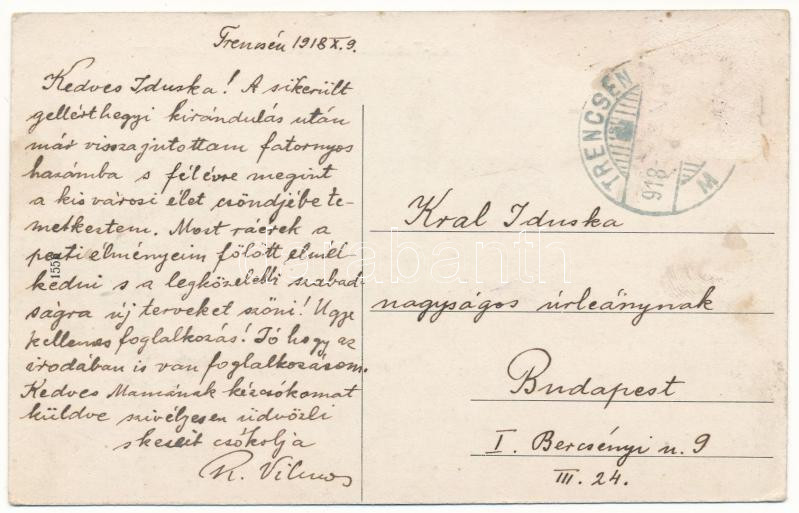 Trencsén 1918 X. 9.
Kedves Iduska! A sikerült
gellérthegyi kirándulás után
már visszajutottam fatornyos
hazámba s félévre megint
a kis városi élet csöndjébe te-
metkeztem. Most ráérek a
pesti élményeim fölött elmél-
kedni s a legközelebbi szabad-
ságra új terveket szőni! Ugye
kellemes foglalkozás! Jó hogy az
irodában is van foglalkozásom.
Kedves Mamának kézcsókomat
küldve szivélyesen üdvözli
s kezeit csókolja
R. Vilmos
155
TRENCSÉN
918
M
Kral Iduska
nagyságos úrleánynak
Budapest
I. Bercsényi u. 9
III. 24.